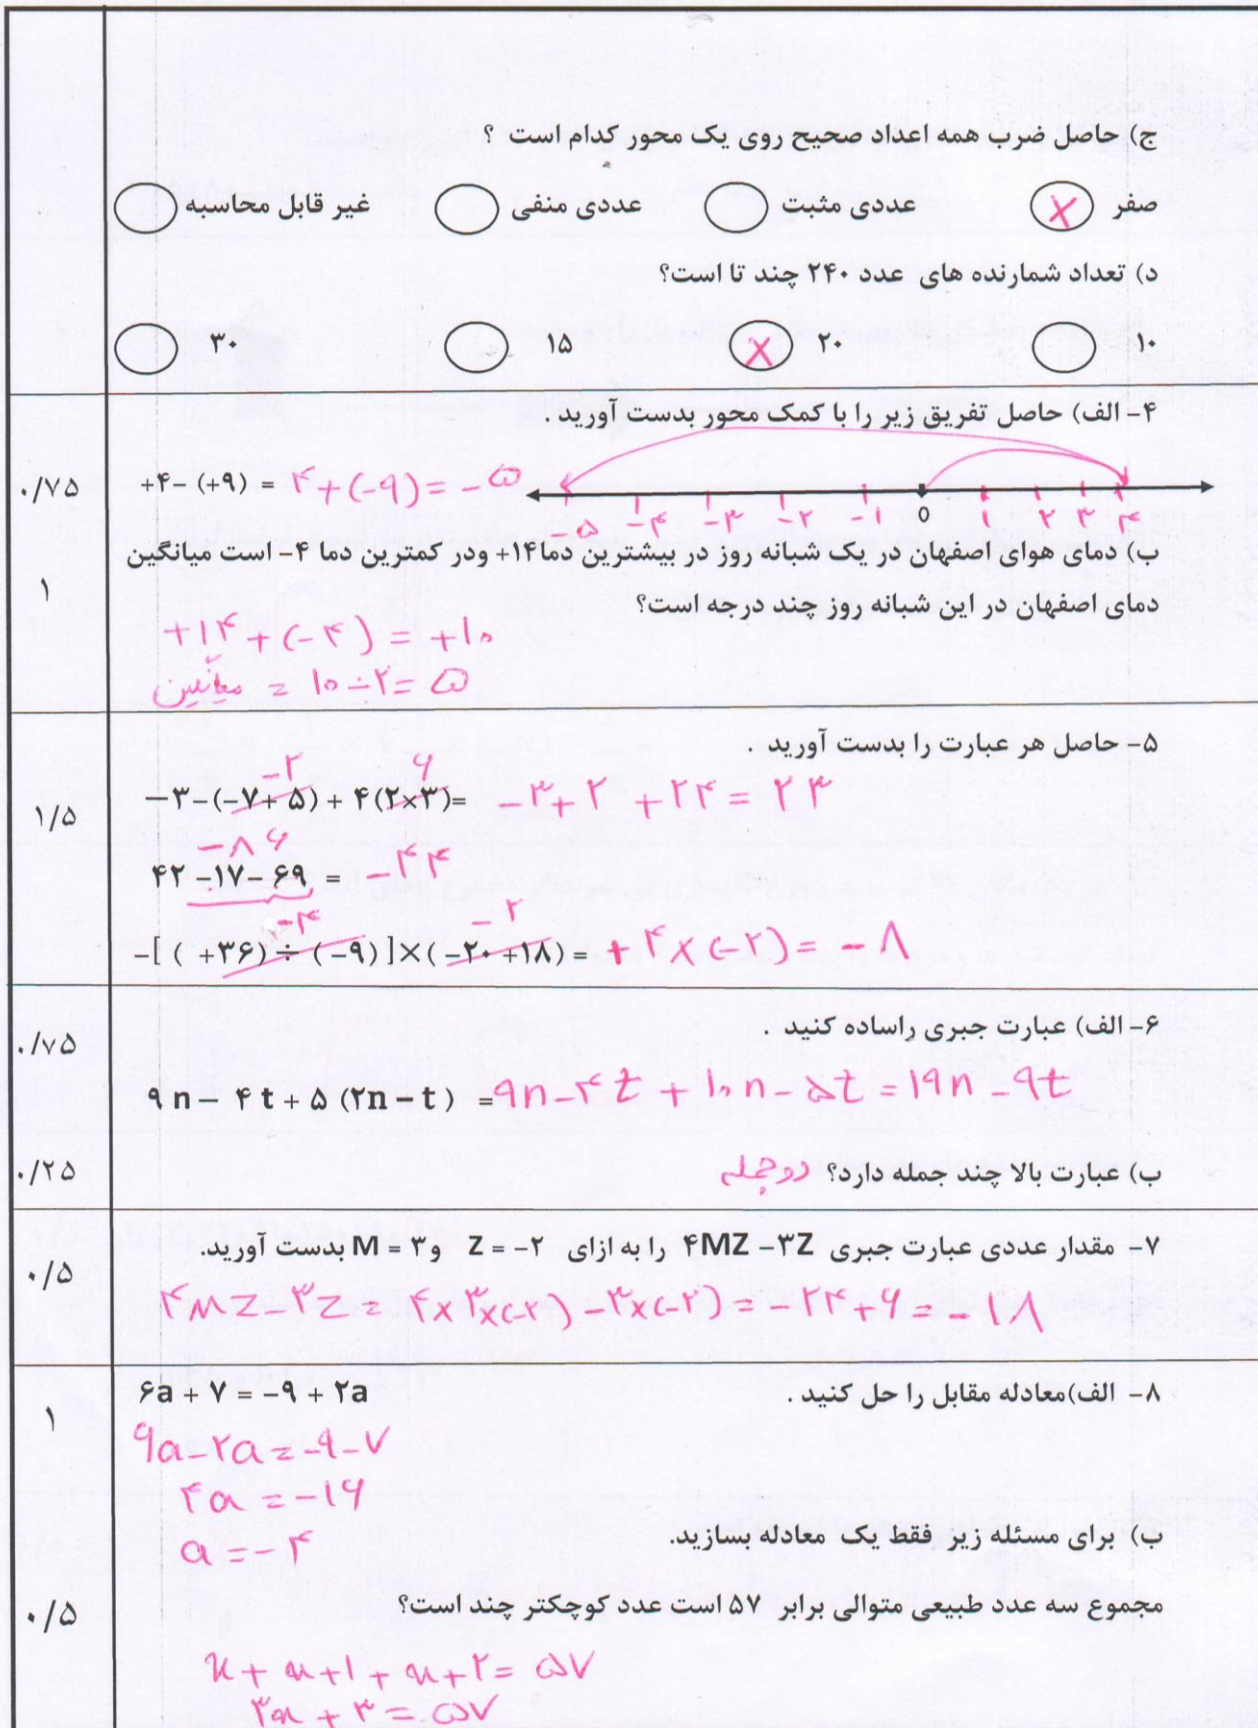 ج) حاصل ضرب همه اعداد صحیح روی یک محور کدام است ؟
صفر X عددی مثبت عددی منفی غیر قابل محاسبه
د) تعداد شمارنده های عدد ۲۴۰ چند تا است؟
۱۰ ۲۰ X ۱۵ ۳۰
۴- الف) حاصل تفریق زیر را با کمک محور بدست آورید .
۰/۷۵ +۴- (+۹) = ۴+(-۹) = -۵
-۵ -۴ -۳ -۲ -۱ 0 ۱ ۲ ۳ ۴
ب) دمای هوای اصفهان در یک شبانه روز در بیشترین دما ۱۴+ ودر کمترین دما ۴- است میانگین
۱
دمای اصفهان در این شبانه روز چند درجه است؟
+۱۴+(-۴) = +۱۰
میانگین = ۱۰÷۲=۵
۵- حاصل هر عبارت را بدست آورید .
-۲ ۶
۱/۵ –۳-(-۷+ ۵) + ۴(۲×۳)= -۳+ ۲ +۲۴ = ۲۳
-۸۶
۴۲ -۱۷- ۶۹ = -۴۴
-۴ -۲
-[ ( +۳۶) ÷ ( -۹) ]×( -۲۰ +۱۸) = +۴×(-۲) = -۸
۶- الف) عبارت جبری راساده کنید .
۰/۷۵
۹ n – ۴ t + ۵ (۲n – t ) =۹n-۴t + ۱۰n-۵t = ۱۹n -۹t
ب) عبارت بالا چند جمله دارد؟ دوجمله
۰/۲۵
۷- مقدار عددی عبارت جبری ۴MZ –۳Z را به ازای Z = -۲ و M = ۳ بدست آورید.
۰/۵
۴MZ-۳Z = ۴×۳×(-۲) -۳×(-۲) = -۲۴+۶ = -۱۸
۸- الف)معادله مقابل را حل کنید . ۶a + ۷ = -۹ + ۲a
۱
۶a-۲a=-۹-۷
۴a =-۱۶
a =-۴
ب) برای مسئله زیر فقط یک معادله بسازید.
مجموع سه عدد طبیعی متوالی برابر ۵۷ است عدد کوچکتر چند است؟
۰/۵
x + x+۱ + x+۲ = ۵۷
۳x + ۳ = ۵۷